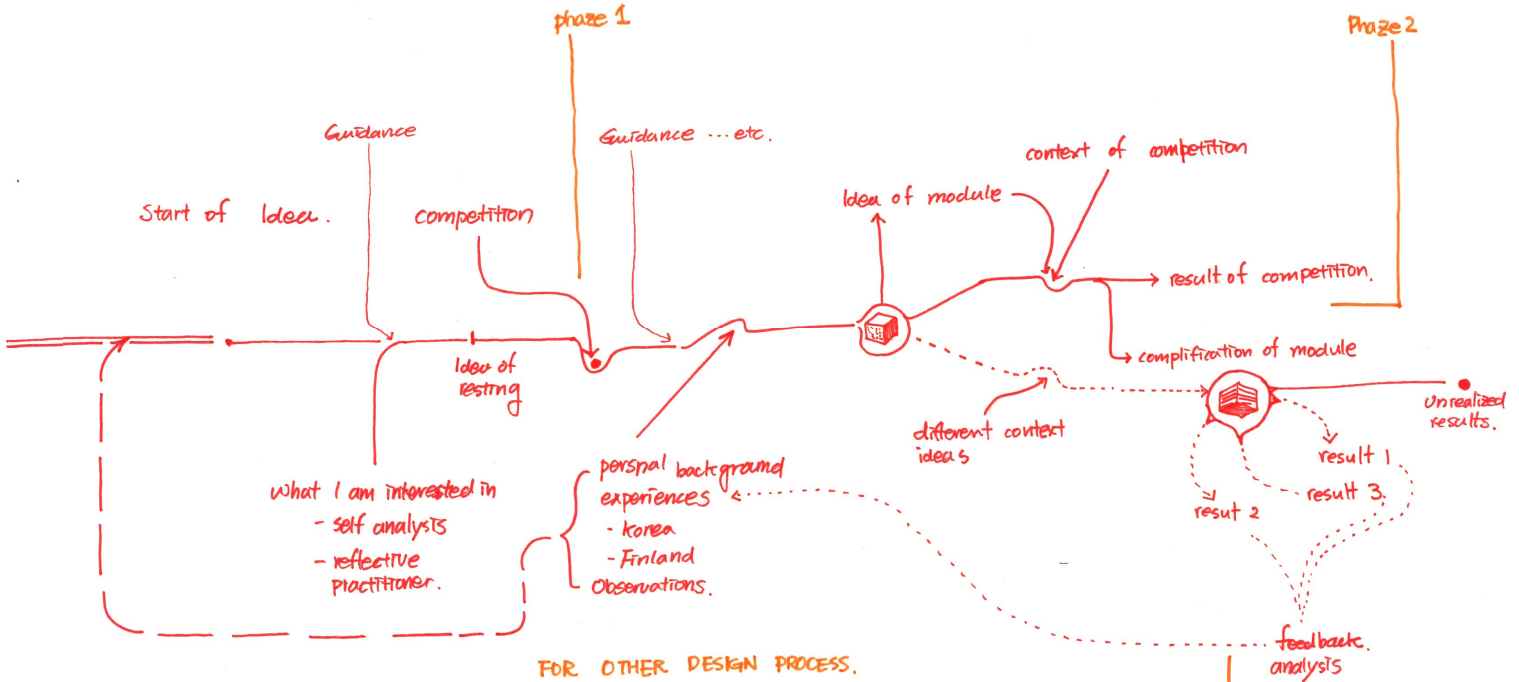 phaze 1
Phaze 2
Guidance
Guidance ... etc.
context of competition
Start of Idea.
competition
Idea of module
result of competition.
Idea of
resting
complification of module
different context
ideas
unrealized
results.
What I am interested in
- self analysis
- reflective
practitioner.
perspnal background
experiences
- Korea
- Finland
Observations.
result 1
result 3.
resut 2
feedback.
analysis
FOR OTHER DESIGN PROCESS.